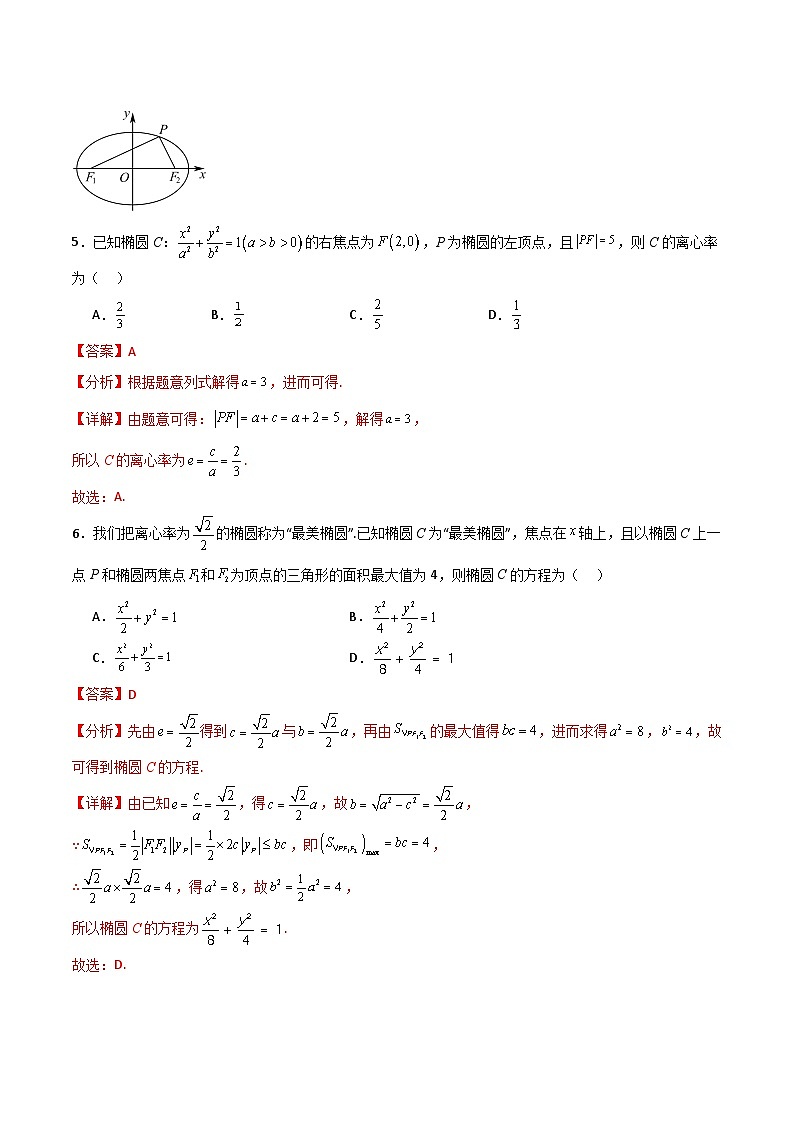 y
P
F₁ O F₂ x
5.已知椭圆 C:x²/a²+y²/b²=1(a>b>0)的右焦点为 F(2,0),P 为椭圆的左顶点,且|PF|=5,则 C 的离心率
为( )
A.2/3 B.1/2 C.2/5 D.1/3
【答案】A
【分析】根据题意列式解得a=3,进而可得.
【详解】由题意可得:|PF|=a+c=a+2=5,解得a=3,
所以 C 的离心率为e=c/a=2/3.
故选:A.
6.我们把离心率为√2/2的椭圆称为“最美椭圆”.已知椭圆 C 为“最美椭圆”,焦点在x轴上,且以椭圆 C 上一
点 P 和椭圆两焦点F₁和F₂为顶点的三角形的面积最大值为 4,则椭圆 C 的方程为( )
A.x²/2+y²=1 B.x²/4+y²/2=1
C.x²/6+y²/3=1 D.x²/8+y²/4=1
【答案】D
【分析】先由e=√2/2得到c=√2/2a与b=√2/2a,再由S▽PF₁F₂的最大值得bc=4,进而求得a²=8,b²=4,故
可得到椭圆 C 的方程.
【详解】由已知e=c/a=√2/2,得c=√2/2a,故b=√(a²-c²)=√2/2a,
∵S▽PF₁F₂=1/2|F₁F₂||y_P|=1/2×2c|y_P|≤bc,即(S▽PF₁F₂)max=bc=4,
∴√2/2a×√2/2a=4,得a²=8,故b²=1/2a²=4,
所以椭圆 C 的方程为x²/8+y²/4=1.
故选:D.